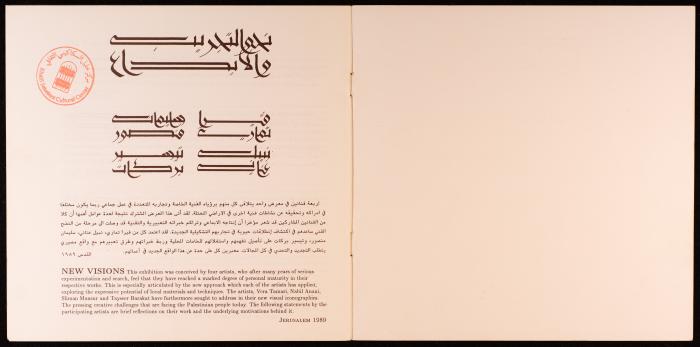 نحو التجريب
والإبداع
مركز خليل السكاكيني الثقافي
Khalil Sakakini Cultural Center
فيرا سليمان
تماري منصور
نبيل تيسير
عناني بركات
اربعة فنانين في معرض واحد يتلاقى كل منهم برؤياه الفنية الخاصة وتجاربه المتعددة في عمل جماعي ربما يكون مختلفا
في ادراكه وتحقيقه عن نشاطات فنية اخرى في الاراضي المحتلة. لقد أتى هذا العرض المشترك نتيجة لعدة عوامل أهمها أن كلا
من الفنانين المشاركين قد شعر مؤخرا أن إنتاجه الابداعي وتراكم خبراته التعبيرية والتقنية قد وصلت الى مرحلة من النضج
الذي ساعدهم في اكتشاف إنطلاقات حيوية في تجاربهم التشكيلية الجديدة. لقد اعتمد كل من فيرا تماري، نبيل عناني، سليمان
منصور، وتيسير بركات على تأصيل نهجهم واستغلالهم للخامات المحلية وربط خبراتهم وطرق تعبيرهم مع واقع مصيري
يتطلب التجديد والتحدي في كل المجالات. معبرين كل على حدة عن هذا الواقع الجديد في أعمالهم.
القدس ١٩٨٩
NEW VISIONS This exhibition was conceived by four artists, who after many years of serious
experimentation and search, feel that they have reached a marked degree of personal maturity in their
respective works. This is especially articulated by the new approach which each of the artists has applied,
exploring the expressive potential of local materials and techniques. The artists, Vera Tamari, Nabil Anani,
Sliman Mansur and Tayseer Barakat have furthermore sought to address in their new visual iconographies.
The pressing creative challenges that are facing the Palestinian people today. The following statements by the
participating artists are brief reflections on their work and the underlying motivations behind it.
JERUSALEM 1989